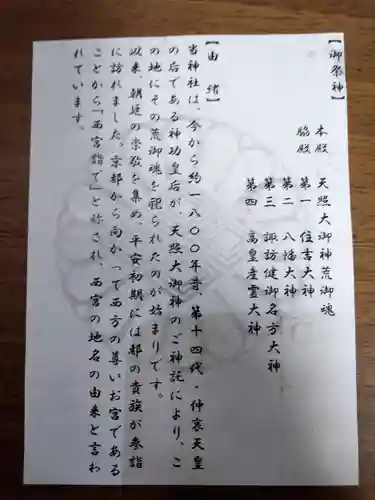 【御祭神】
本殿 天照大御神荒御魂
脇殿 第一 住吉大神
第二 八幡大神
第三 諏訪健御名方大神
第四 高皇産霊大神
【由緒】
当神社は、今から約一八〇〇年昔、第十四代・仲哀天皇
の后である神功皇后が、天照大御神のご神託により、こ
の地にその荒御魂を祀られたのが始まりです。
以来、朝廷の崇敬を集め、平安初期には都の貴族が参詣
に訪れました。京都から向かって西方の尊いお宮である
ことから「西宮詣で」と称され、西宮の地名の由来と言わ
れています。